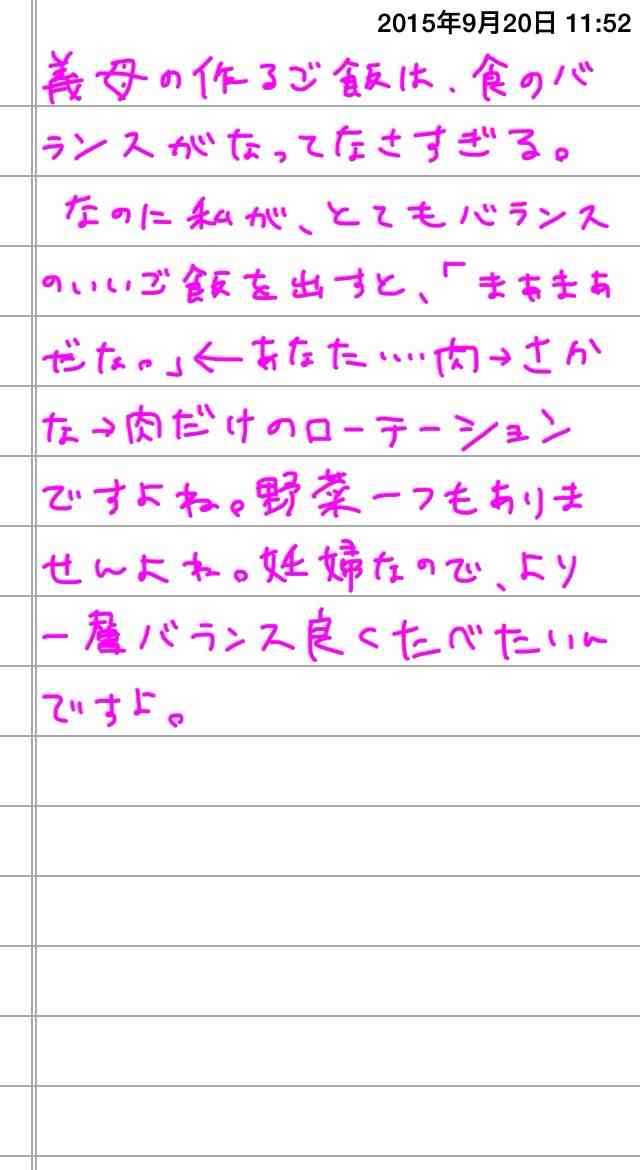 2015年9月20日 11:52
義母の作るご飯は、食のバ
ランスがなってなさすぎる。
なのに私が、とてもバランス
のいいご飯を出すと、「まぁまぁ
だな。」←あなた…肉→さか
な→肉だけのローテーション
ですよね。野菜一つもありま
せんよね。妊婦なので、より
一層バランス良くたべたいん
ですよ。